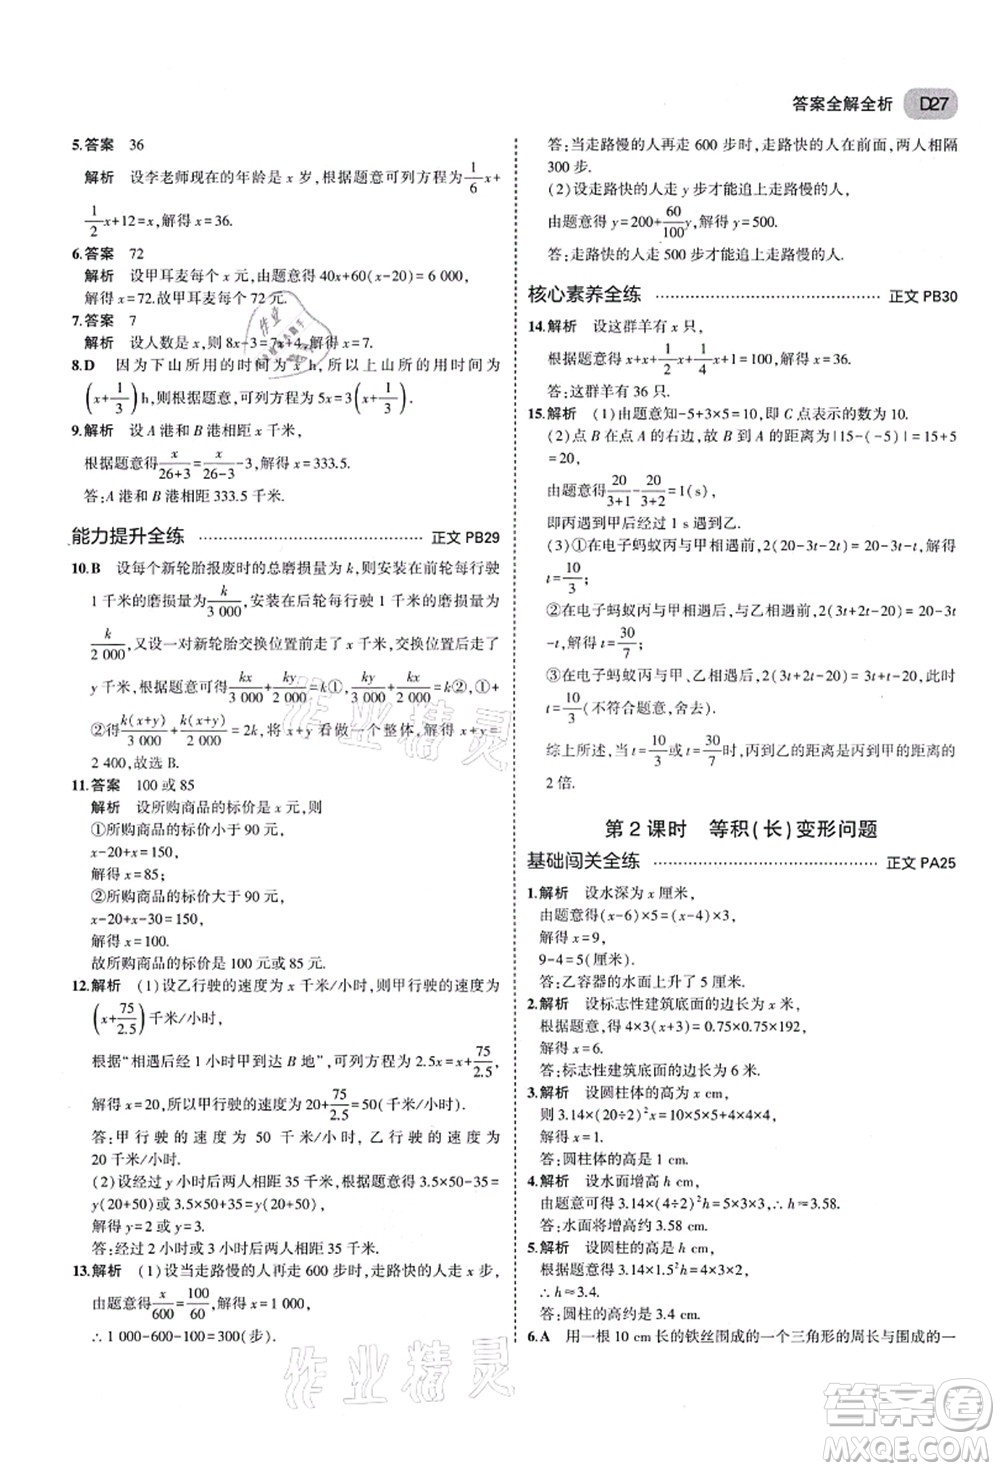 答案全解全析 D27
5.答案 36
解析 设李老师现在的年龄是 x 岁,根据题意可列方程为 1/6 x+
1/2 x+12=x,解得 x=36.
6.答案 72
解析 设甲耳麦每个 x 元,由题意得 40x+60(x-20)=6 000,
解得 x=72.故甲耳麦每个 72 元.
7.答案 7
解析 设人数是 x,则 8x-3=7x+4,解得 x=7.
8.D 因为下山所用的时间为 x h,所以上山所用时间为
(x+1/3) h,则根据题意,可列方程为 5x=3(x+1/3).
9.解析 设 A 港和 B 港相距 x 千米,
根据题意得 x/(26+3)=x/(26-3)-3,解得 x=333.5.
答:A 港和 B 港相距 333.5 千米.
能力提升全练 正文 PB29
10.B 设每个新轮胎报废时的总磨损量为 k,则安装在前轮每行驶
1 千米的磨损量为 k/3 000,安装在后轮每行驶 1 千米的磨损量为
k/2 000,又设一对新轮胎交换位置前走了 x 千米,交换位置后走了
y 千米,根据题意得 kx/3 000+ky/2 000=k①,ky/3 000+kx/2 000=k②,①+
②得 k(x+y)/3 000+k(x+y)/2 000=2k,将 x+y 看做一个整体,解得 x+y=
2 400,故选 B.
11.答案 100 或 85
解析 设所购商品的标价是 x 元,则
①所购商品的标价小于 90 元,
x-20+x=150,
解得 x=85;
②所购商品的标价大于 90 元,
x-20+x-30=150,
解得 x=100.
故所购商品的标价是 100 元或 85 元.
12.解析 (1)设乙行驶的速度为 x 千米/小时,则甲行驶的速度为
(x+75/2.5) 千米/小时,
根据“相遇后经 1 小时甲到达 B 地”,可列方程为 2.5x=x+75/2.5,
解得 x=20,所以甲行驶的速度为 20+75/2.5=50(千米/小时),
答:甲行驶的速度为 50 千米/小时,乙行驶的速度为
20 千米/小时.
(2)设经过 y 小时两人相距 35 千米,根据题意得 3.5×50-35=
y(20+50)或 3.5×50+35=y(20+50),
解得 y=2 或 y=3.
答:经过 2 小时或 3 小时后两人相距 35 千米.
13.解析 (1)设当走路慢的人再走 600 步时,走路快的人走 x 步,
由题意得 x/600=100/60,解得 x=1 000,
∴ 1 000-600-100=300(步).
答:当走路慢的人再走 600 步时,走路快的人在前面,两人相隔
300 步.
(2)设走路快的人走 y 步才能追上走路慢的人,
由题意得 y=200+60/100 y,解得 y=500.
答:走路快的人走 500 步才能追上走路慢的人.
核心素养全练 正文 PB30
14.解析 设这群羊有 x 只,
根据题意得 x+x+1/2 x+1/4 x+1=100,解得 x=36.
答:这群羊有 36 只.
15.解析 (1)由题意知-5+3×5=10,即 C 点表示的数为 10.
(2)点 B 在点 A 的右边,故点 B 到 A 的距离为|15-(-5)|=15+5
=20,
由题意得 20/(3+1)-20/(3+2)=1(s),
即丙遇到甲后经过 1 s 遇到乙.
(3)①在电子蚂蚁丙与甲相遇前,2(20-3t-2t)=20-3t-t,此时
t=10/3;
②在电子蚂蚁丙与甲相遇后,与乙相遇前,2(3t+2t-20)=20-3t
-t,解得 t=30/7;
③在电子蚂蚁丙与甲、乙相遇后,2(3t+2t-20)=3t+t-20,此时
t=10/3(不符合题意,舍去).
综上所述,当 t=10/3或 t=30/7时,丙到乙的距离是丙到甲的距离的
2 倍.
第 2 课时 等积(长)变形问题
基础闯关全练 正文 PA25
1.解析 设水深为 x 厘米,
由题意得(x-6)×5=(x-4)×3,
解得 x=9,
9-4=5(厘米).
答:乙容器的水面上升了 5 厘米.
2.解析 设标志性建筑底面的边长为 x 米,
根据题意,得 4×3(x+4)=0.75×0.75×192,
解得 x=6.
答:标志性建筑底面的边长为 6 米.
3.解析 设圆柱体的高为 x cm,
则 3.14×(20÷2)²x=5×5×5+4×4×11.8,
解得 x=1.
答:圆柱体的高是 1 cm.
4.解析 设水面增高 h cm,
由题意可得 3.14×(4÷2)²h=5×3×3,∴ h≈3.58.
答:水面将增高约 3.58 cm.
5.解析 设圆柱的高为 h cm,
由题意得 3.14×1.5²h=4×3×2,
∴ h≈3.4.
答:圆柱的高约是 3.4 cm.
6.A 用一根 10 cm 长的铁丝围成的一个三角形的周长与围成的一
作业精灵
作业精灵
答案圈
MXQE.COM